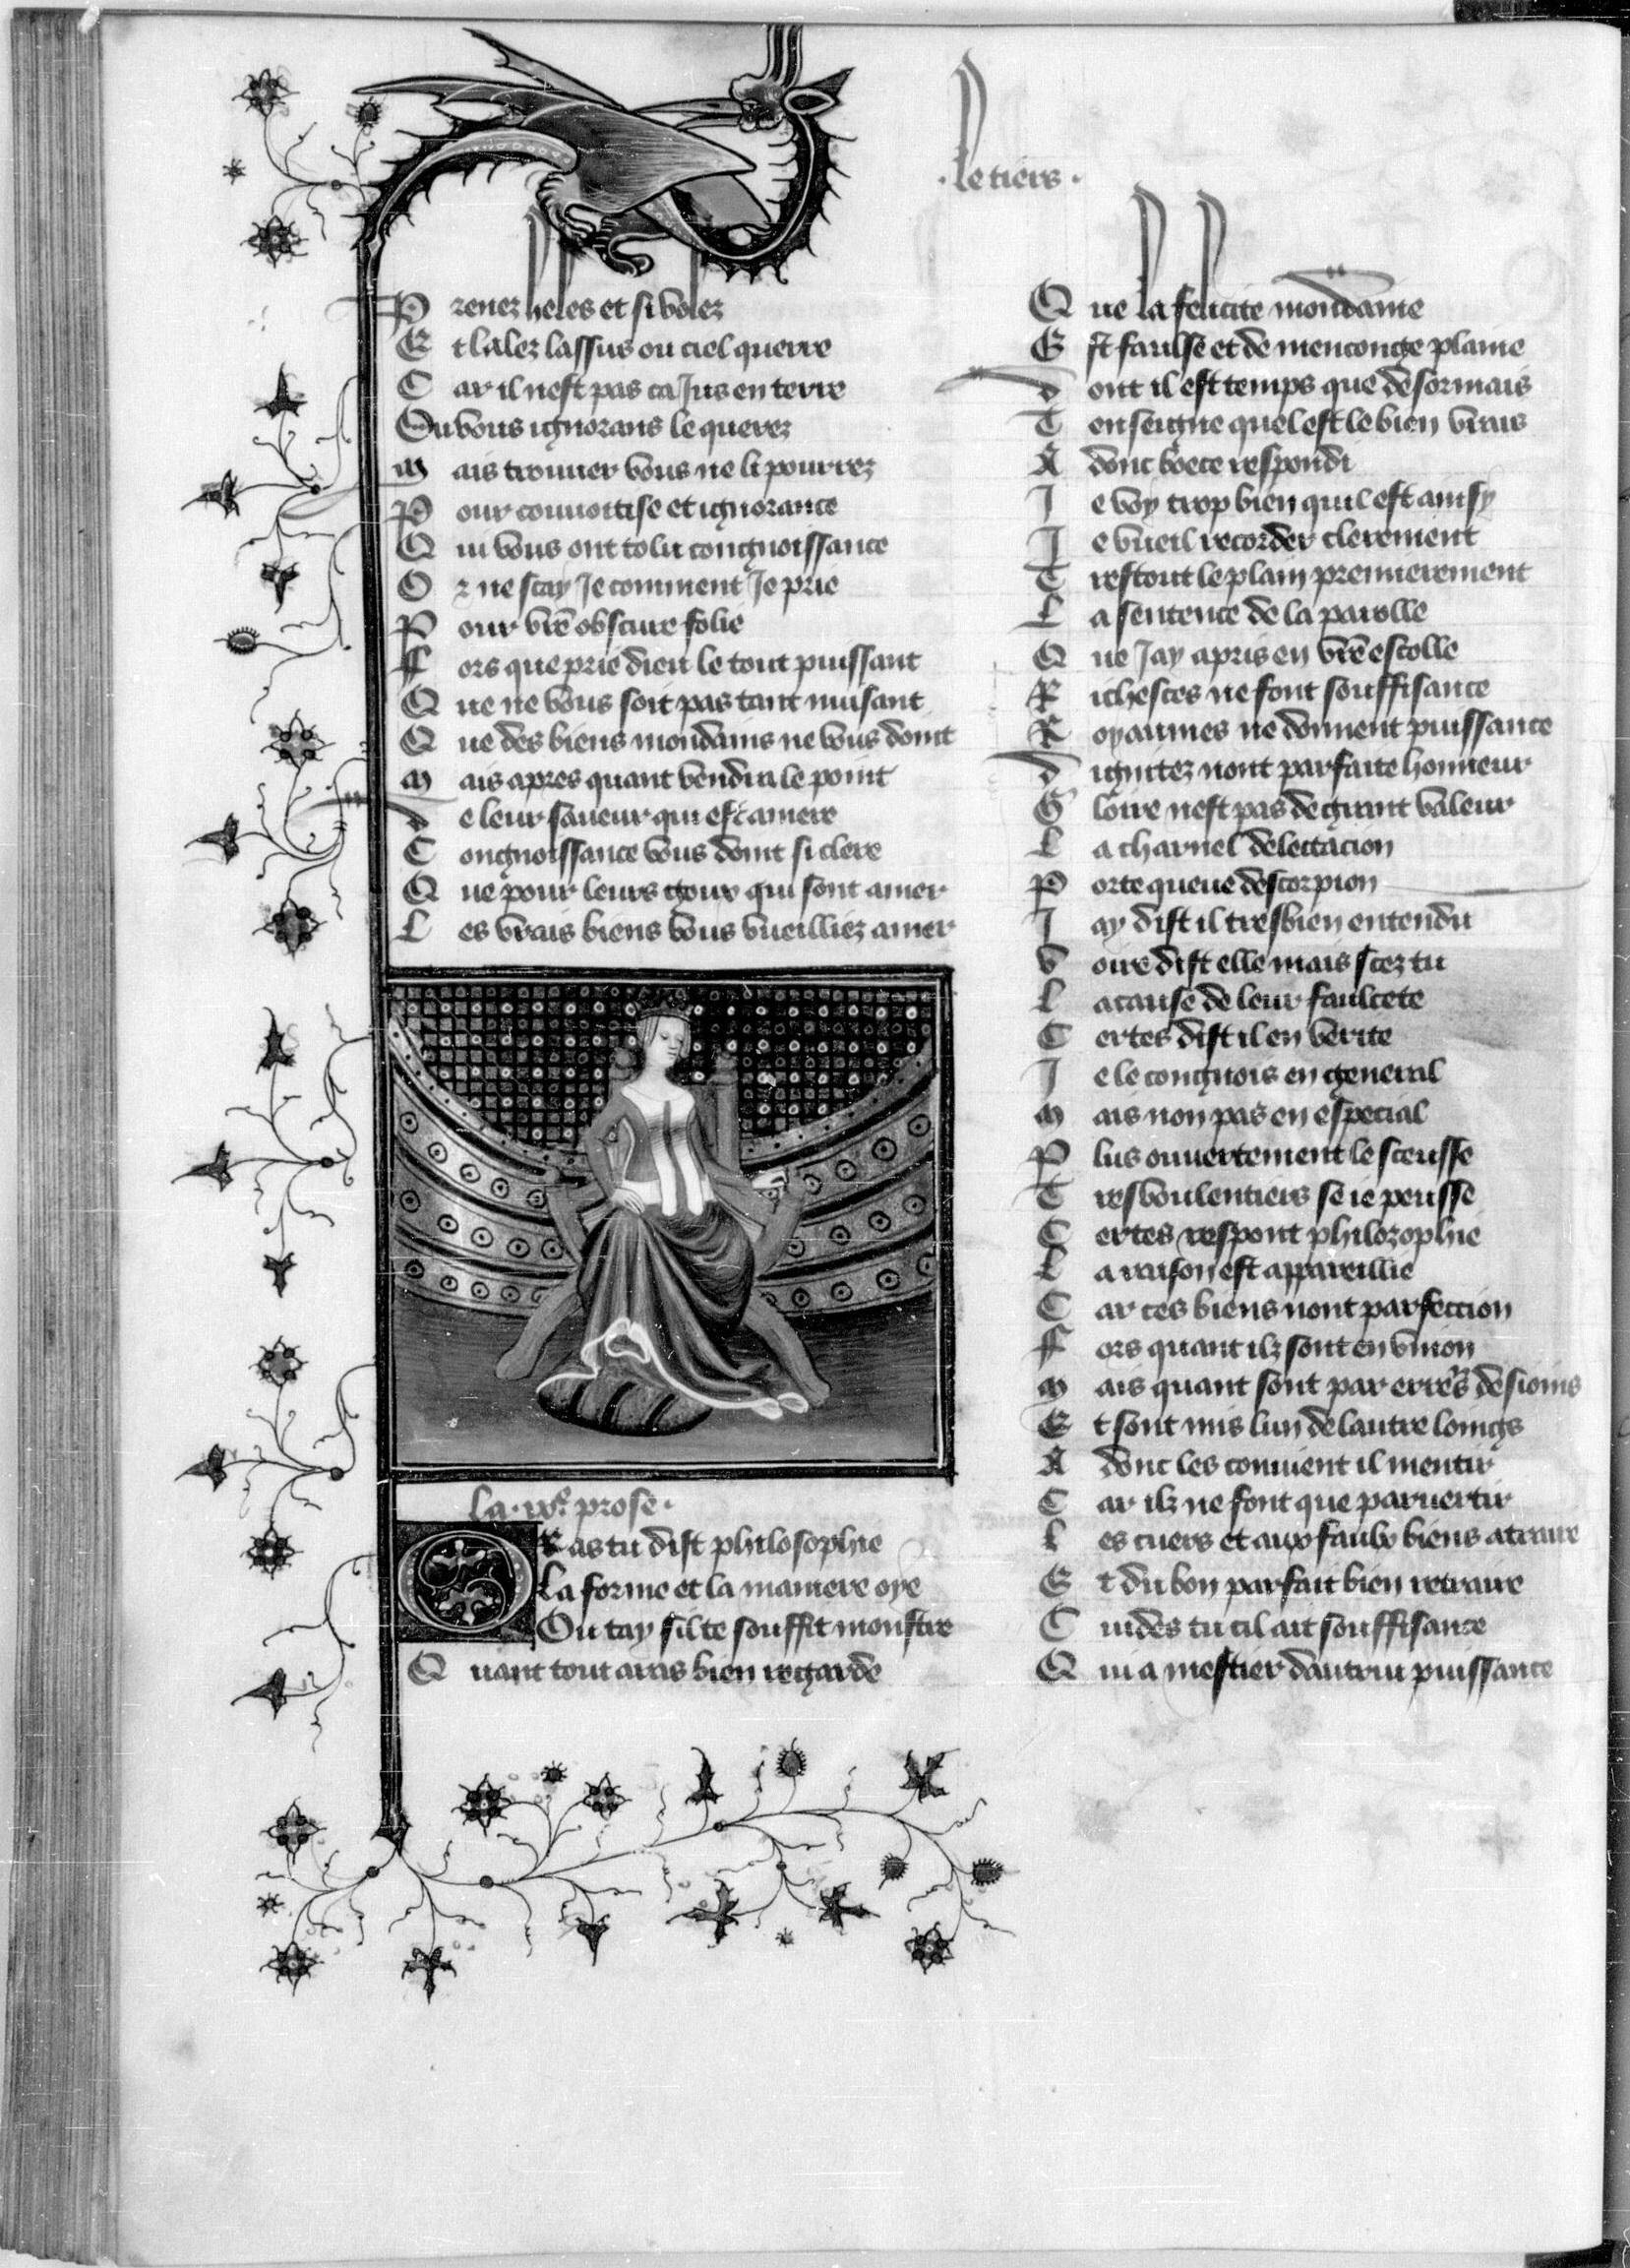 .Le tiers.
Prenez heles et si volez
Et lalez lassus ou ciel querre
Car il nest pas ca Jus en terre
Ou vous ignorans le querez
Mais trouuer vous ne li pourrez
Pour couuoitise et ignorance
Qui vous ont tolu congnoissance
Or ne scay Je comment Je prie
Pour vr̄e obscure folie
Fors que prie dieu le tout puissant
Que ne vous soit pas tant nuisant
Que des biens mondains ne vous doint
Mais apres quant vendra le point
De leur saueur qui est amere
Congnoissance vous doint si clere
Que pour leurs goux qui sont amer
Les vrais biens vous vueilliez amer
La .ixe. prose.
Or as tu dist philosophie
La forme et la maniere oye
Ou tay sil te souffit monstre
Quant tout auras bien regarde
Que la felicite mondaine
Est faulse et de menconge plaine
Dont il est temps que desormais
Tenseigne quel est le bien vrais
Adonc boece respondi
Je voy trop bien quil est ainsy
Je vueil recorder clerement
Trestout le plain premierement
La sentence de la parolle
Que Jay apris en vr̄e escolle
Richesces ne font souffisance
Royaumes ne donnent puissance
Dignitez nont parfaite honneur
Gloire nest pas de grant valeur
La charnel delectacion
Porte queue descorpion
Jay dist il tresbien entendu
Voire dist elle mais scez tu
La cause de leur faulcete
Certes dist il en verite
Je le congnois en general
Mais non pas en especial
Plus ouuertement le sceusse
Tres voulentiers se ie peusse
Certes respont philozophie
La raison est appareillie
Car ces biens nont parfection
Fors quant ilz sont en vnion
Mais quant sont par erreͬs desioins
Et sont mis lun de lautre loings
Adonc les conuient il mentir
Car ilz ne font que paruertir
Les cuers et aux faulx biens atraire
Et du bon parfait bien retraire
Cuides tu cil ait souffisance
Qui a mestier dautrui puissance